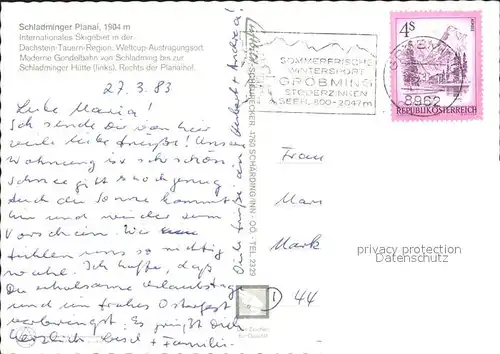 Schladminger Planai, 1904 m
Internationales Skigebiet in der
Dachstein-Tauern-Region; Weltcup-Austragungsort.
Moderne Gondelbahn von Schladming bis zur
Schladminger Hütte (links). Rechts der Planaihof.
27. 3. 83
Liebe Maria!
Ich sende Dir von hier
viele liebe Grüße! Unsere
Wohnung ist sehr schön.
Schnee gibt es noch genug
Auch die Sonne kommt
hin und wieder zum
Vorschein. Wir
fühlen uns so richtig
wohl. Ich hoffe, daß
Du erholsame Urlaubstage
und ein frohes Osterfest
verbringst. Es grüßt Dich
herzlich + Familie
Viele Grüße an Hubert + Andrea!
4780 SCHÄRDING/INN - OÖ - TEL. 2322
SOMMERFRISCHE
WINTERSPORT
GRÖBMING
STODERZINKEN
SEEH. 800-2047m
GRÖBMING
8962
4S
REPUBLIK ÖSTERREICH
Frau
Mar
Mark
privacy protection
Datenschutz
I 44